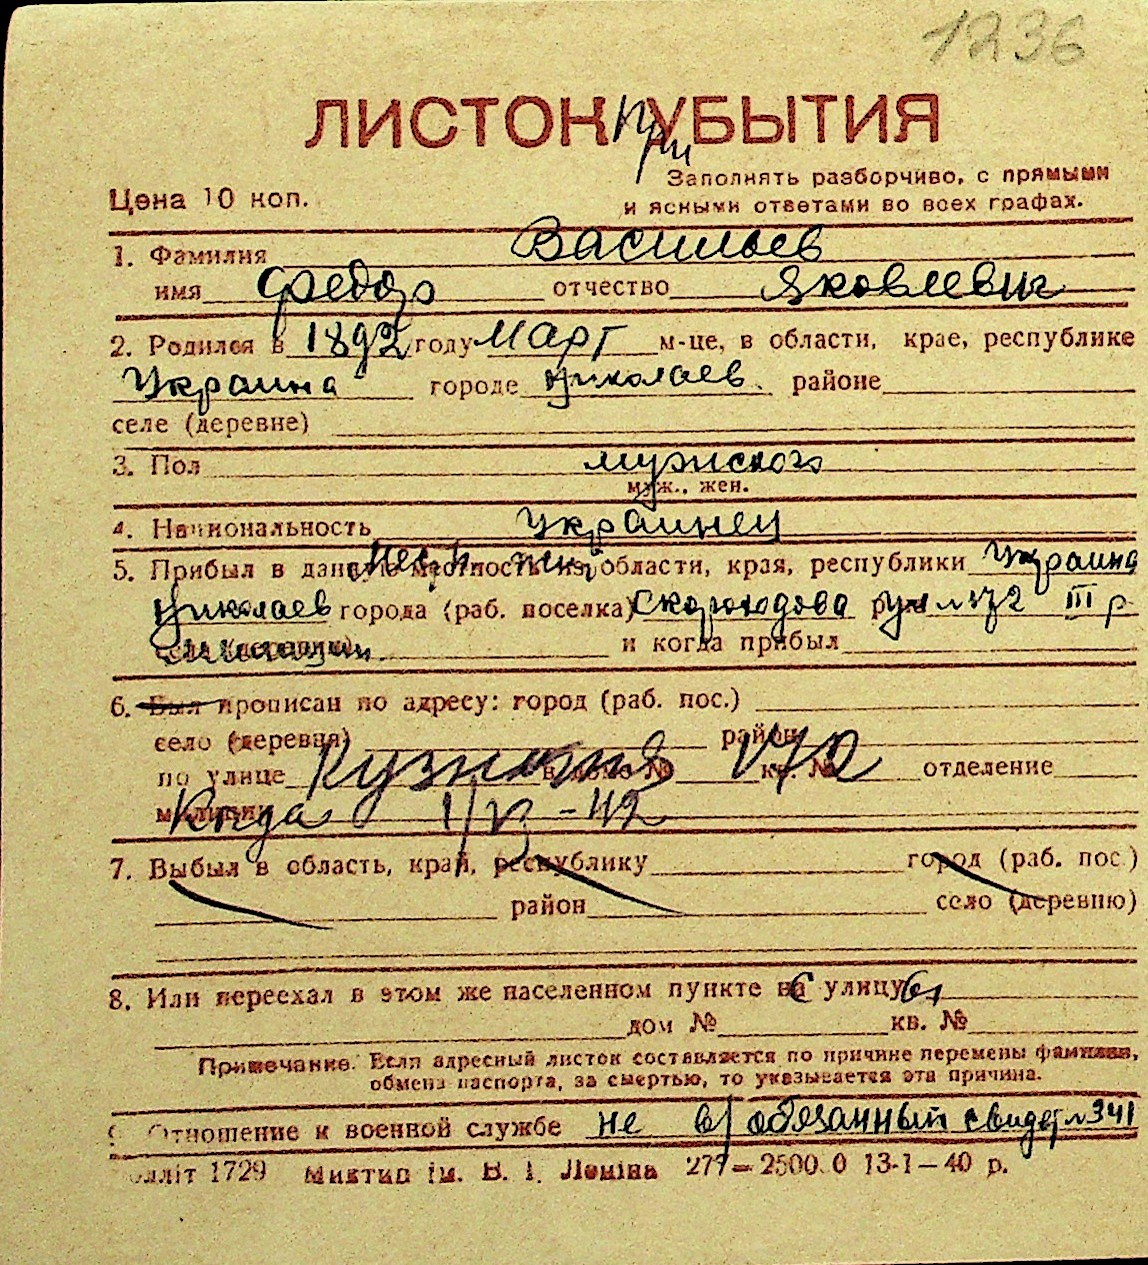 1236
ЛИСТОК при УБЫТИЯ
Цена 10 коп.
Заполнять разборчиво, с прямыми
и ясными ответами во всех графах.
1. Фамилия Васильев
имя Федор отчество Яковлевич
2. Родился в 1892 году Март м-це, в области, крае, республике
Украина городе Николаев районе
селе (деревне)
3. Пол мужского
муж., жен.
4. Национальность Украинец
5. Прибыл в данную местность из области, края, республики Украина
Николаев города (раб. поселка) Скороходова ул №72 III р
и когда прибыл
6. Был прописан по адресу: город (раб. пос.)
село (деревня) район
по улице в доме № кв. № отделение
милиции Когда
7. Выбыл в область, край, республику город (раб. пос.)
район село (деревню)
8. Или переехал в этом же населенном пункте на улицу
дом № кв. №
Примечание. Если адресный листок составляется по причине перемены фамилии,
обмена паспорта, за смертью, то указывается эта причина.
9. Отношение к военной службе не в/обязанный свидет №341
1729 Миктип ім. В. І. Леніна 277—2500.0 13-1—40 р.